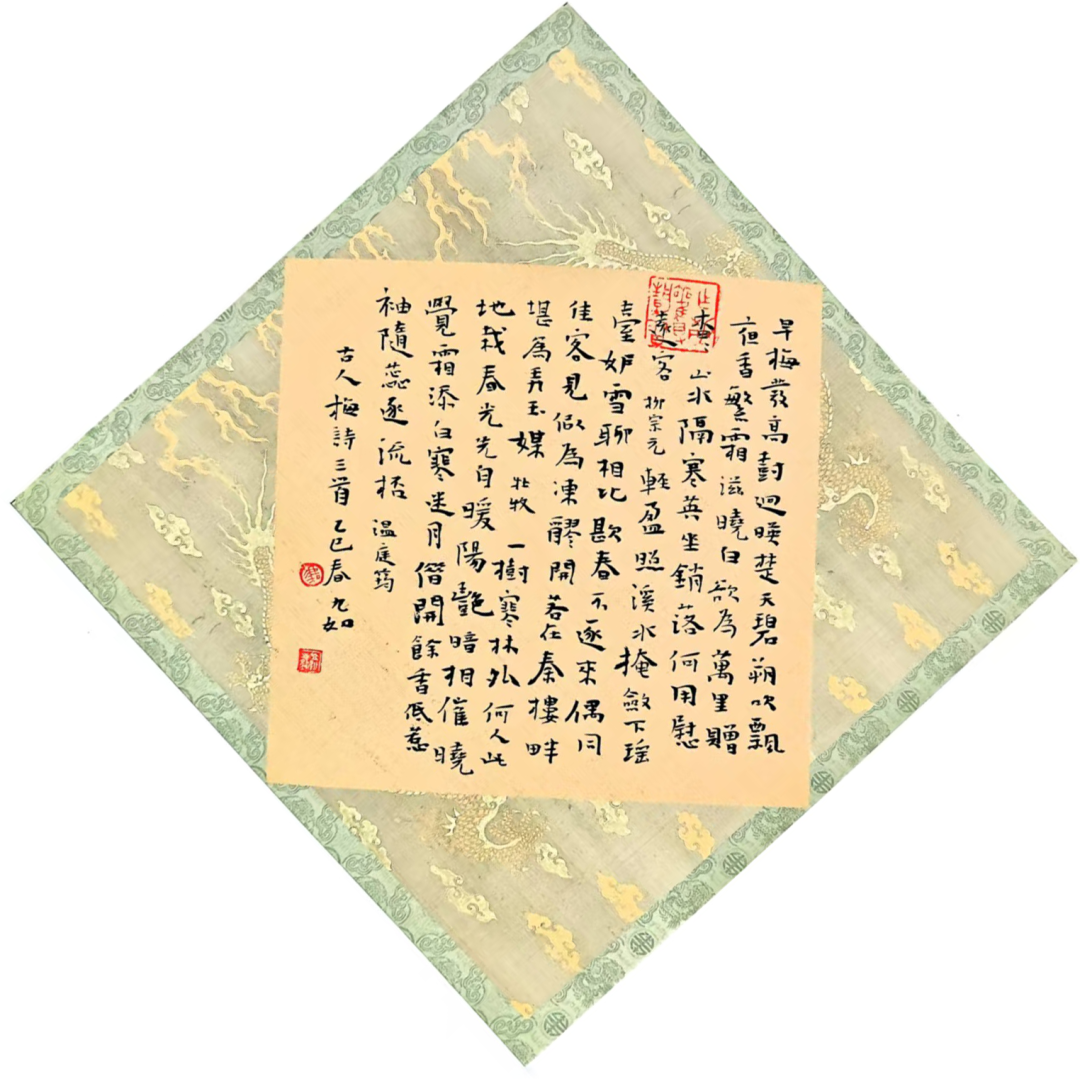 早梅發高樹迥暎楚天碧朔吹飄
夜香繁霜滋曉白欲為萬里贈
杳〻山水隔寒英坐銷落何用慰
遠客 柳宗元 輕盈照溪水掩斂下瑤
臺妒雪聊相比欺春不逐來偶同
佳客見似為凍醪開若在秦樓畔
堪為弄玉媒 杜牧 一樹寒林外何人此
地栽春光先自暖陽艷暗相催曉
覺霜添白寒迷月借開餘香低惹
袖隨蕊逐流杯 温庭筠
古人梅詩三首 乙巳春 九如